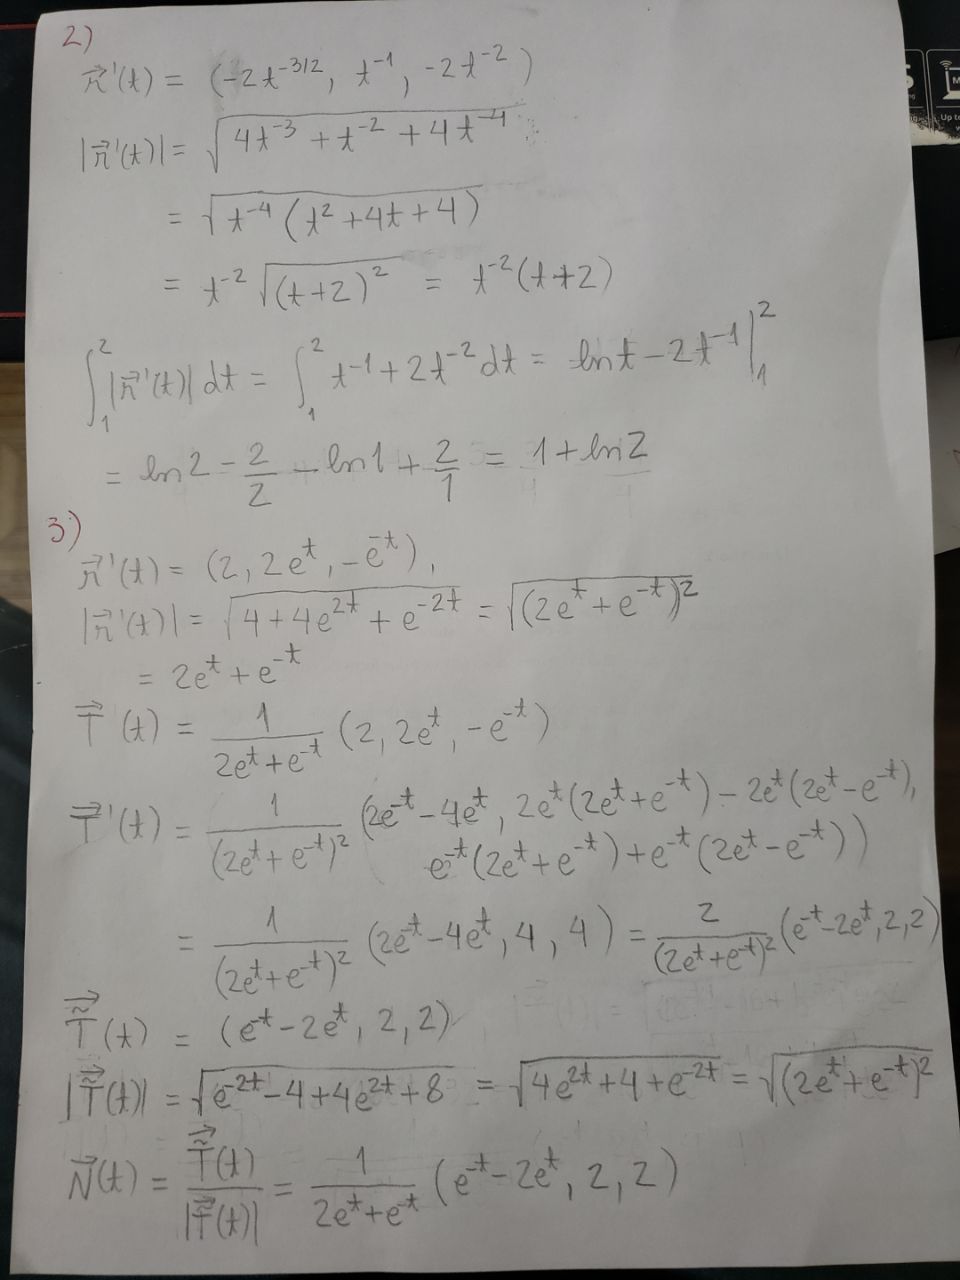 2)
r⃗'(t) = (-2t^{-3/2}, t^{-1}, -2t^{-2})
|r⃗'(t)| = √(4t^{-3} + t^{-2} + 4t^{-4})
= √(t^{-4}(t^2 + 4t + 4))
= t^{-2} √((t+2)^2) = t^{-2}(t+2)
∫_1^2 |r⃗'(t)| dt = ∫_1^2 t^{-1} + 2t^{-2} dt = ln t - 2t^{-1} |_1^2
= ln2 - 2/2 - ln1 + 2/1 = 1 + ln2
3)
r⃗'(t) = (2, 2e^t, -e^{-t}),
|r⃗'(t)| = √(4 + 4e^{2t} + e^{-2t}) = √((2e^t + e^{-t})^2)
= 2e^t + e^{-t}
T⃗(t) = 1/(2e^t + e^{-t}) (2, 2e^t, -e^{-t})
T⃗'(t) = 1/(2e^t + e^{-t})^2 (2e^{-t} - 4e^t, 2e^t(2e^t + e^{-t}) - 2e^t(2e^t - e^{-t}),
e^{-t}(2e^t + e^{-t}) + e^{-t}(2e^t - e^{-t}))
= 1/(2e^t + e^{-t})^2 (2e^{-t} - 4e^t, 4, 4) = 2/(2e^t + e^{-t})^2 (e^{-t} - 2e^t, 2, 2)
T̃⃗(t) = (e^{-t} - 2e^t, 2, 2)
|T̃⃗(t)| = √(e^{-2t} - 4 + 4e^{2t} + 8) = √(4e^{2t} + 4 + e^{-2t}) = √((2e^t + e^{-t})^2)
N⃗(t) = T̃⃗(t)/|T̃⃗(t)| = 1/(2e^t + e^{-t}) (e^{-t} - 2e^t, 2, 2)